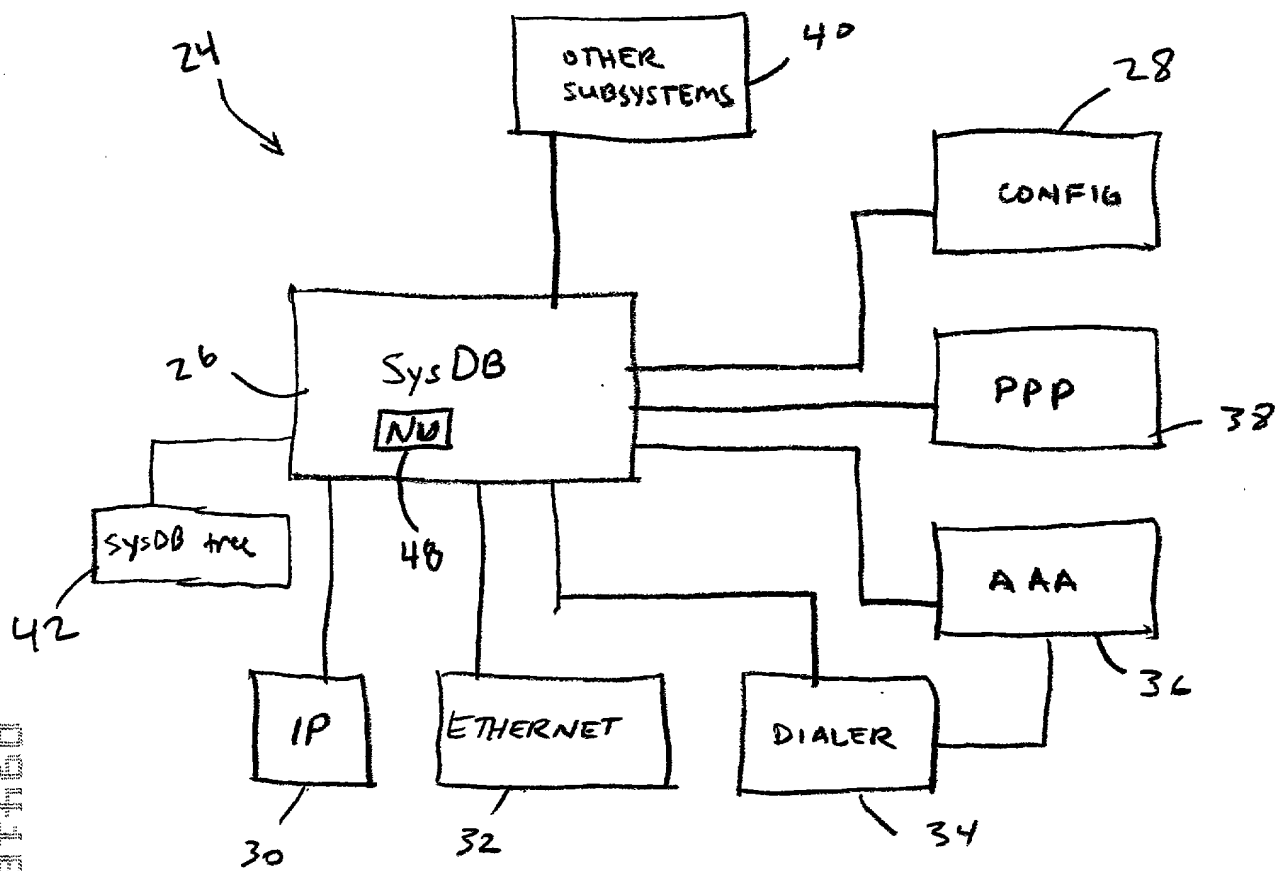 24
OTHER
SUBSYSTEMS
40
28
CONFIG
26
SysDB
NU
48
PPP
38
SysDB tree
42
AAA
36
IP
30
ETHERNET
32
DIALER
34